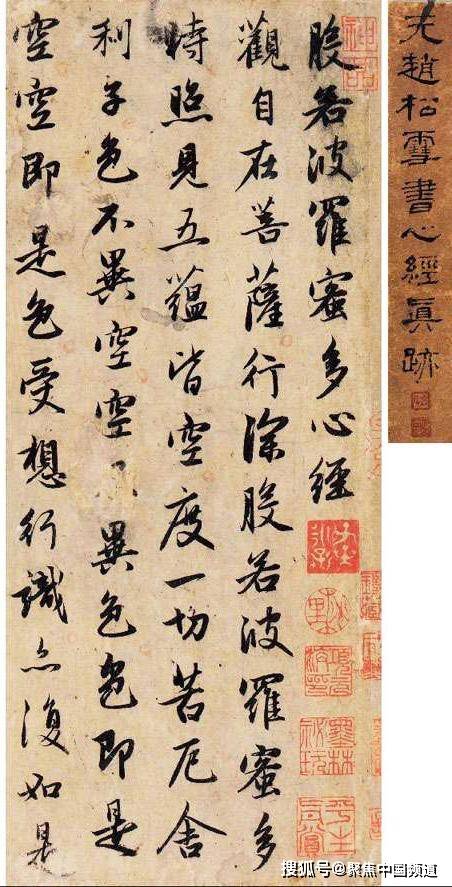 元趙松雪書心經眞跡
神品
般若波羅蜜多心經
墨林祕玩
觀自在菩薩行深般若波羅蜜多
時照見五蘊皆空度一切苦厄舍
利子色不異空空不異色色即是
空空即是色受想行識亦復如是
搜狐号@聚焦中国频道